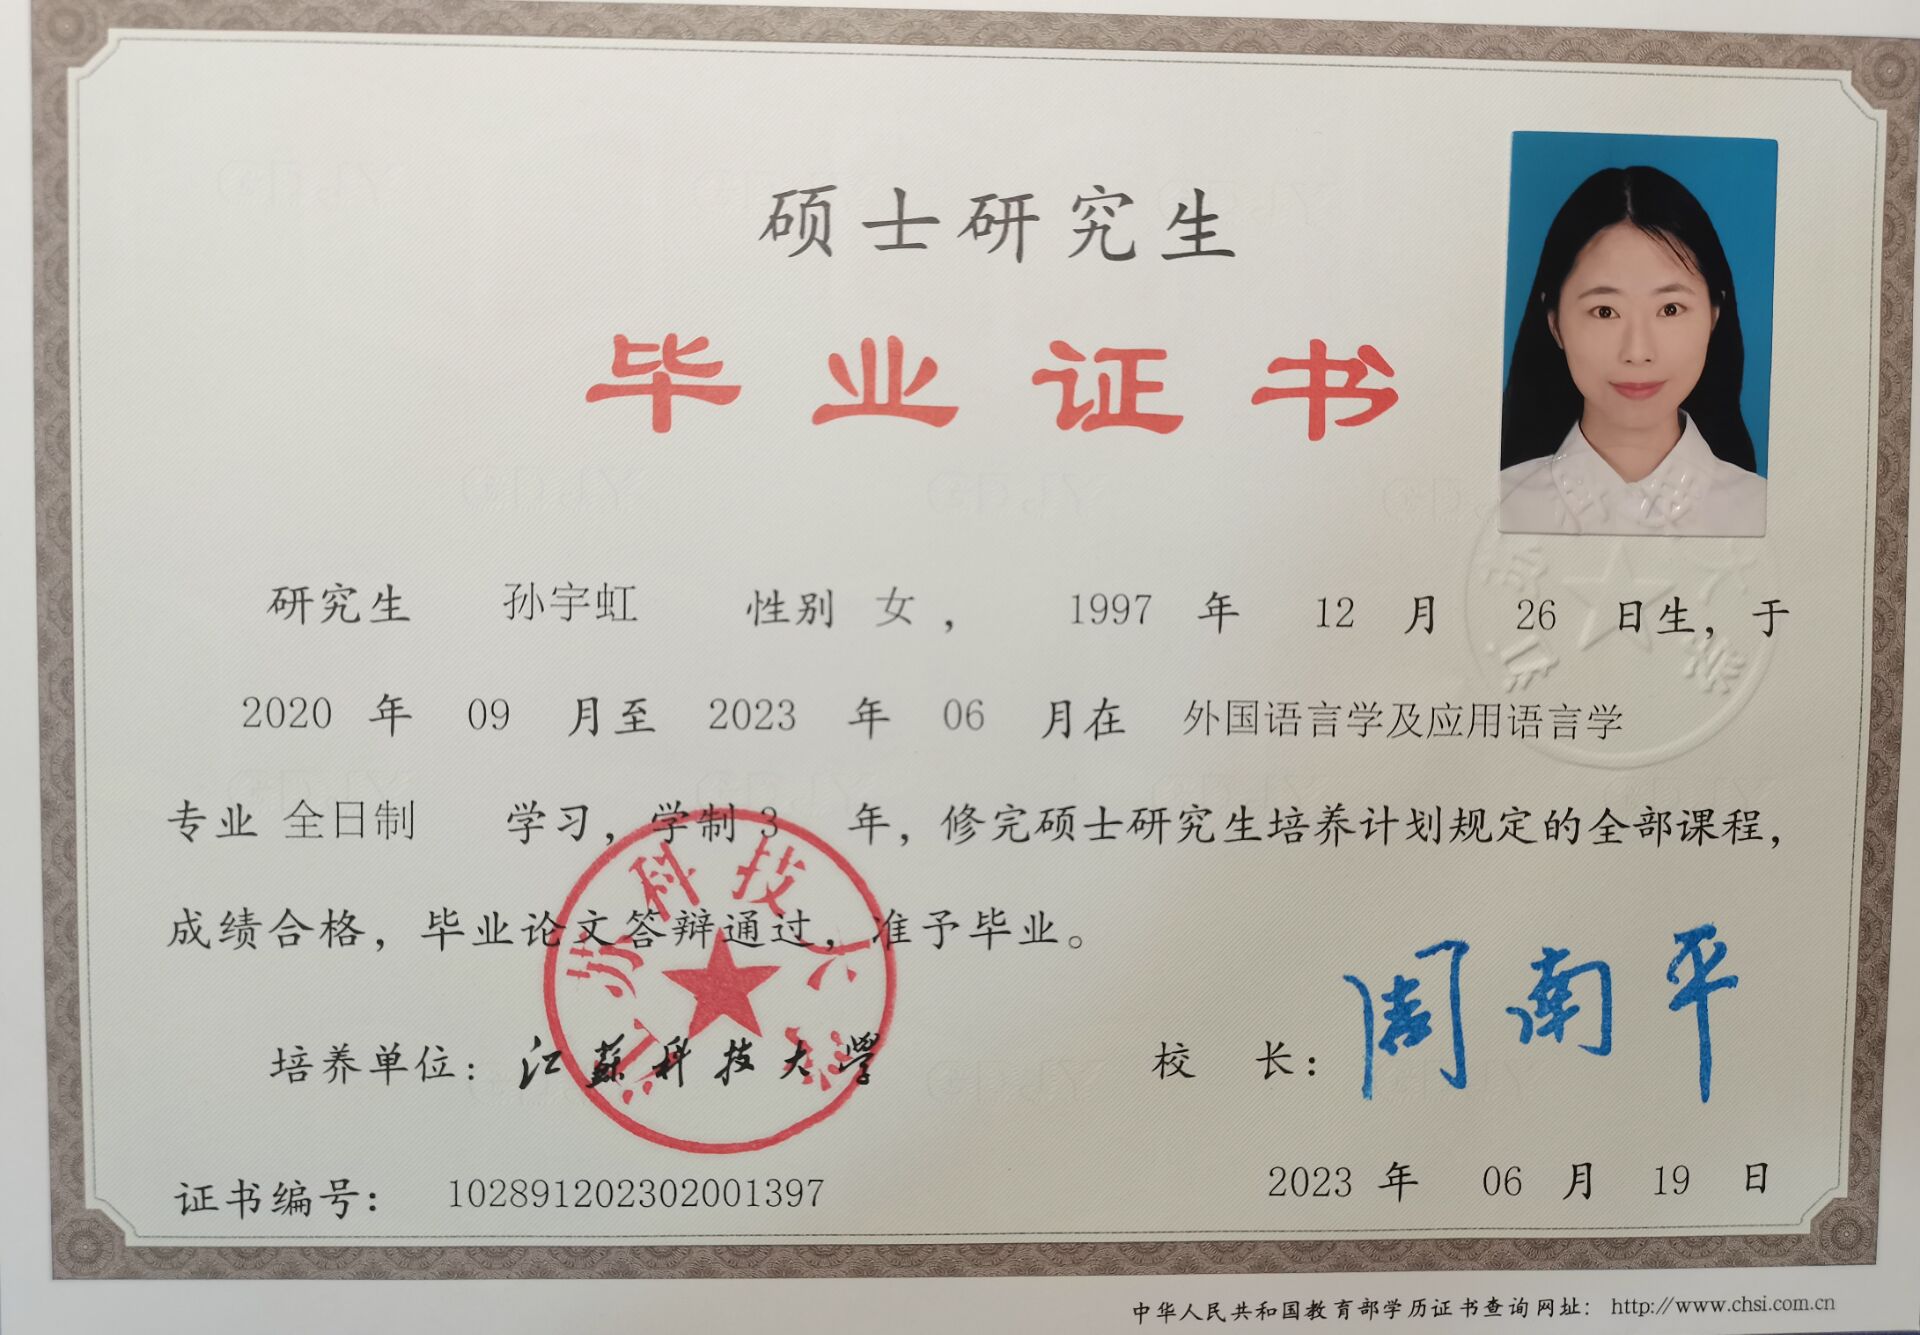 硕士研究生
毕业证书
研究生 孙宇虹 性别 女， 1997 年 12 月 26 日生，于
2020 年 09 月至 2023 年 06 月在 外国语言学及应用语言学
专业 全日制 学习，学制 3 年，修完硕士研究生培养计划规定的全部课程，
成绩合格，毕业论文答辩通过，准予毕业。
江苏科技大学
培养单位：江蘇科技大学
校 长：周南平
证书编号： 102891202302001397
2023 年 06 月 19 日
中华人民共和国教育部学历证书查询网址： http://www.chsi.com.cn